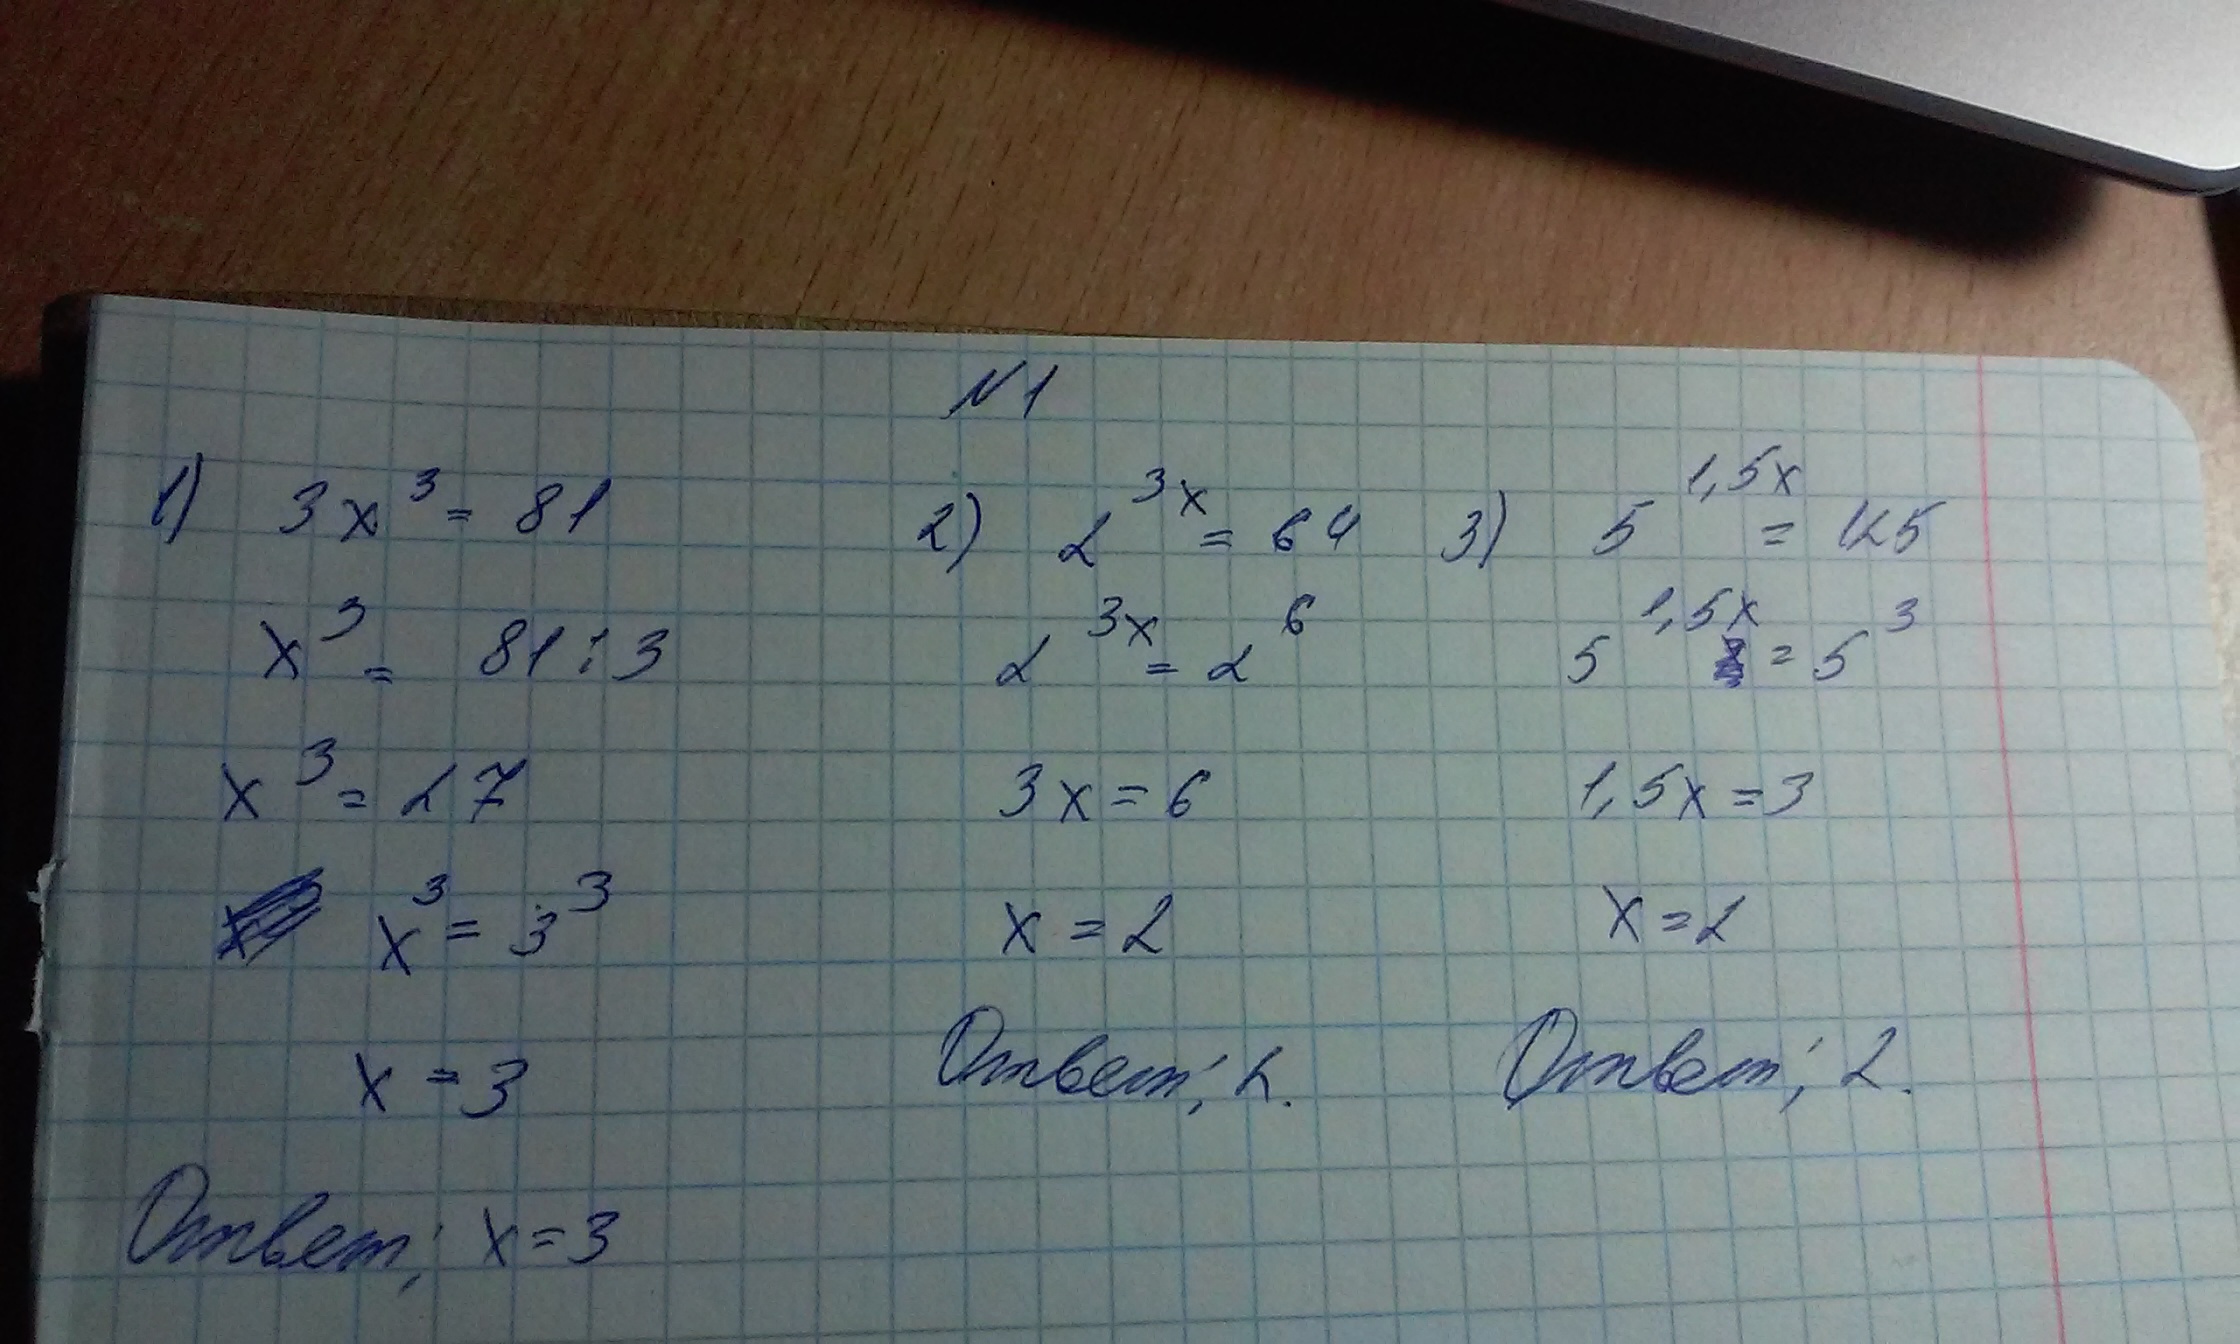 N1
1) 3x³ = 81
x³ = 81 : 3
x³ = 27
x³ = 3³
x = 3
Ответ: x = 3
2) 2^3x = 64
2^3x = 2^6
3x = 6
x = 2
Ответ: 2.
3) 5^1,5x = 125
5^1,5x = 5³
1,5x = 3
x = 2
Ответ: 2.